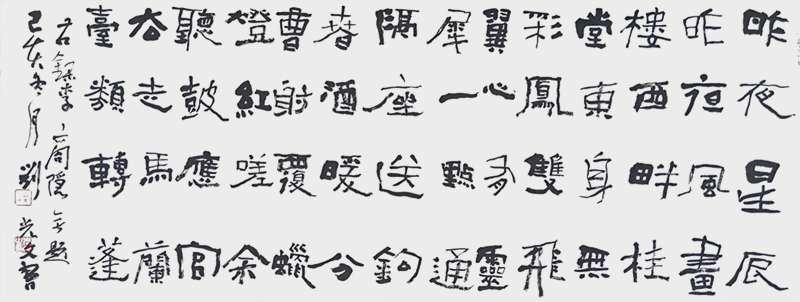 昨夜星辰
昨夜風畫
樓西畔桂
堂東身無
彩鳳雙飛
翼心有靈
犀一點通
隔座送鉤
春酒暖分
曹射覆蠟
燈紅嗟余
聽鼓應官
去走馬蘭
臺類轉蓬
右錄李商隱無題
己亥冬月劉